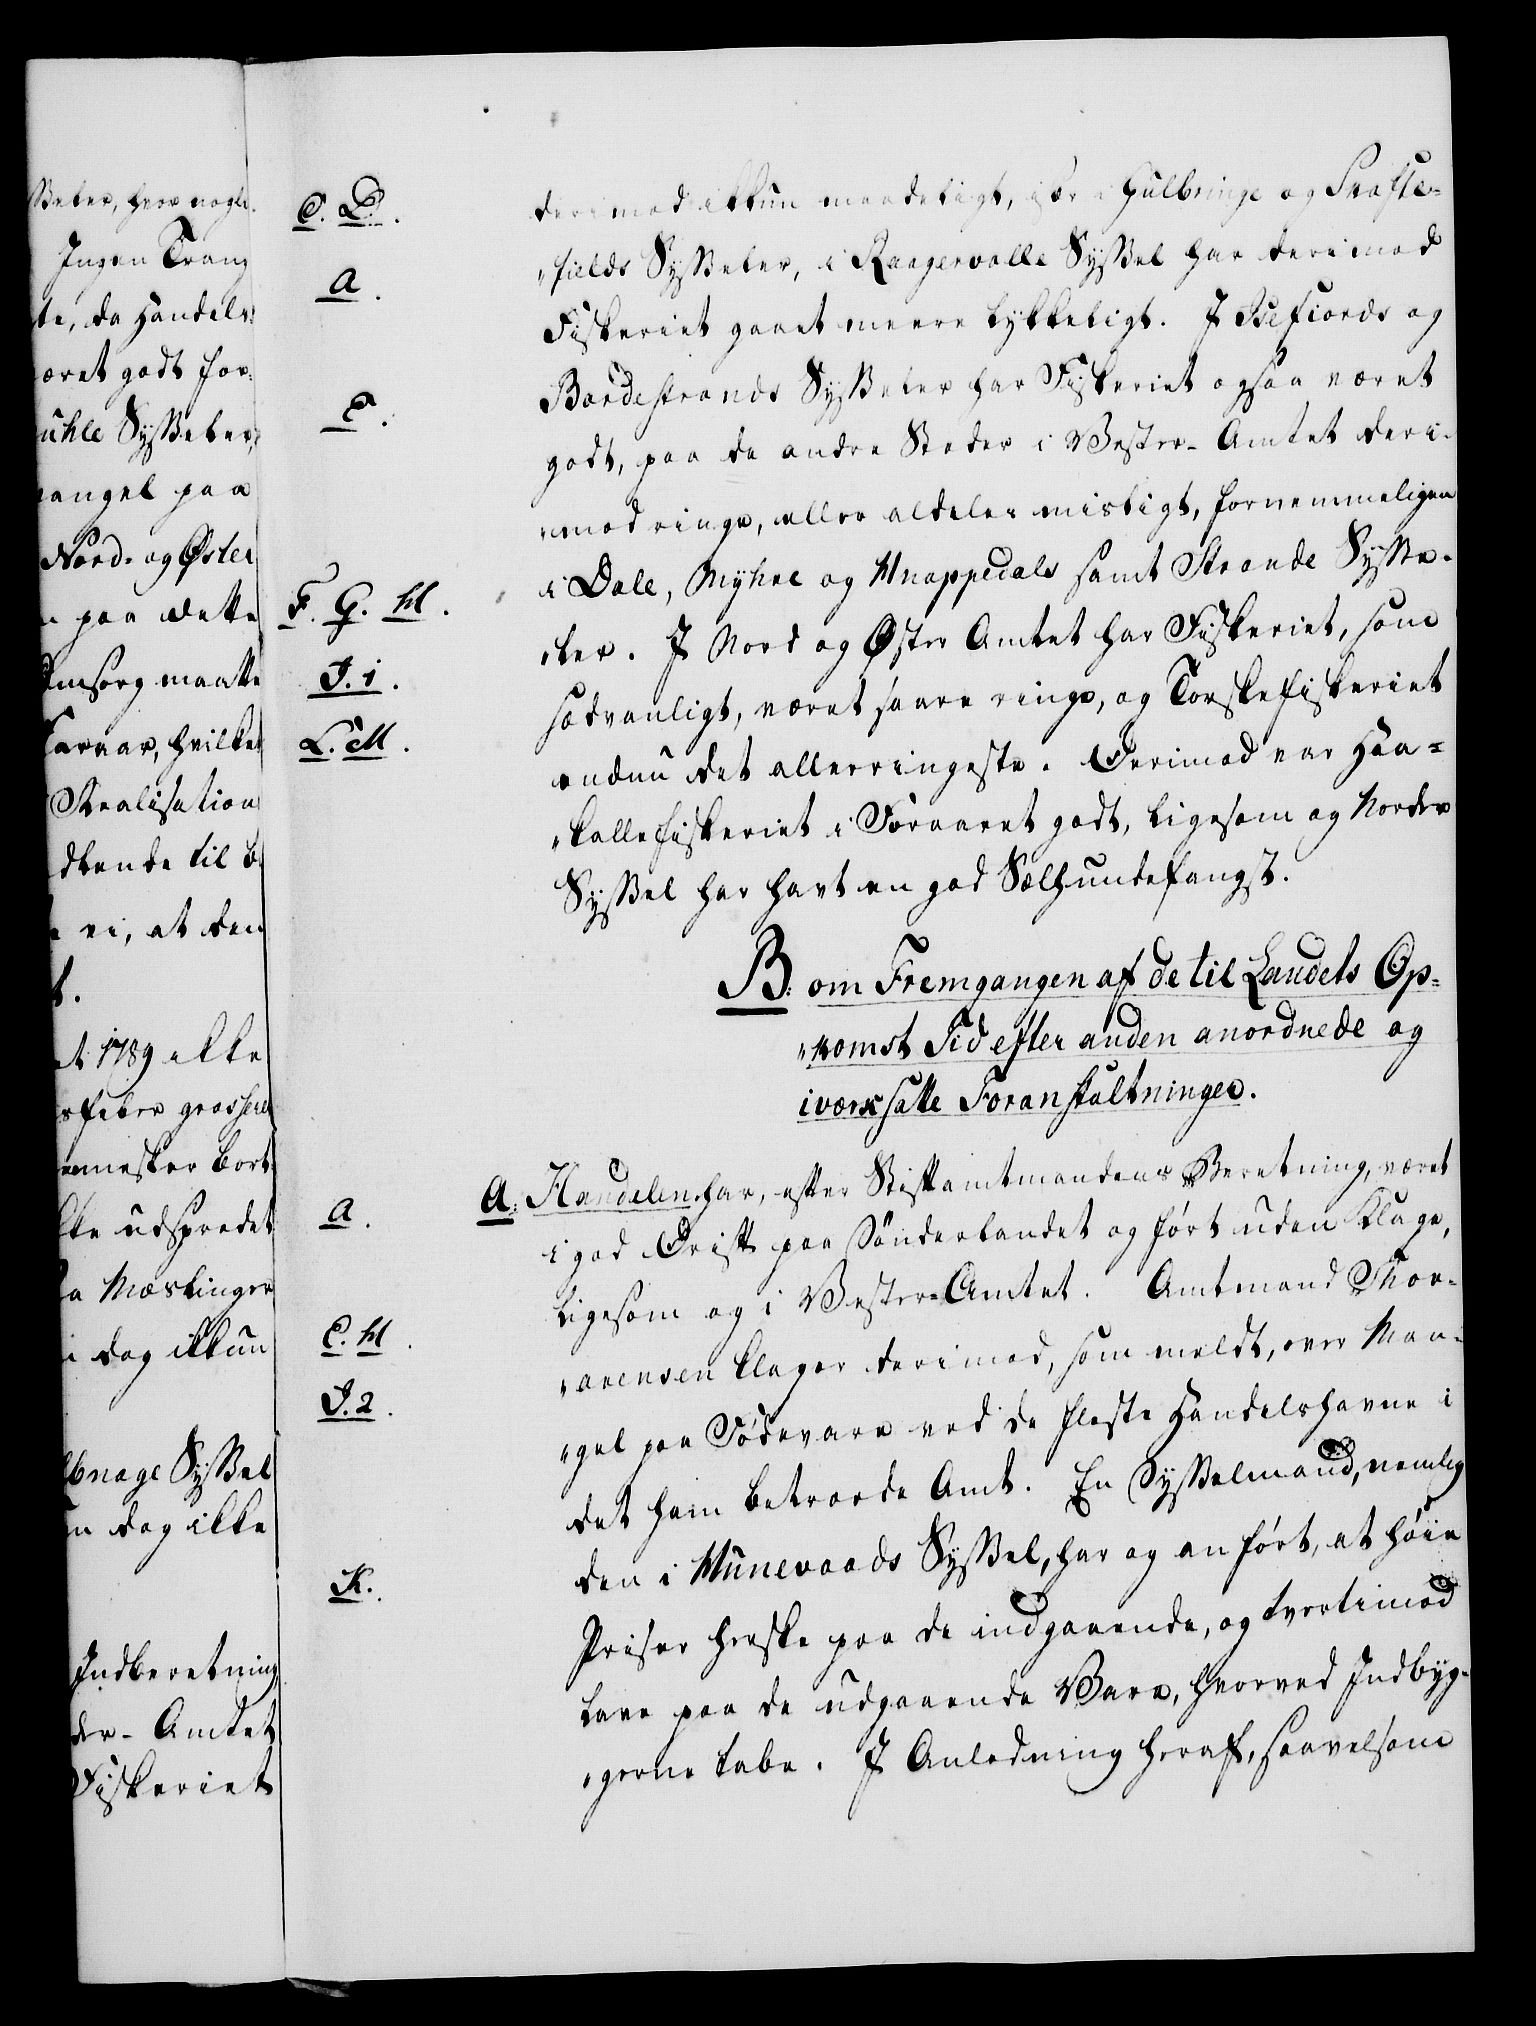 ßeler, hvor nogle
Ingen Trang
te, da Handels
æret godt for
uhle Sysseler,
angel paa
Nord- og Øster
paa dette
Omsorg maatte
Harvar, hvilket
Realisation
dkende til b
vi, at den
t.
et 1789 ikke
sfeber grasseret
ennesker bort
ke udspredet
a Mæslinger
i dog ikkun
bnage Syssel
n dog ikke
Indberetning
der- Amtet
Fiskeriet
C. D.
A.
E.
F. G. H.
I. 1.
L. M.
A.
C. H.
I. 2.
K.
derimod ikkun maadeligt, især i Gulbringe og Snofse-
"fields Sysseler, i Raagervalle Syssel har derimod
Fiskeriet gaaet meere lykkeligt. I Isefiords og
Bardestrands Sysseler har Fiskeriet ogsaa været
godt, paa de andre Steder i Vester-Amtet deri-
"mod ringe, eller aldeles misligt, fornemmeligen
i Dale, Myhre og Hnappedals samt Strande Sysse-
"ler. I Nord og Øster Amtet har Fiskeriet, som
sædvanligt, været saare ringe, og Torskefiskeriet
endnu det allerringeste. Derimod var Haa-
"kallefiskeriet i Foraaret godt, ligesom og Norder
Syssel har havt en god Sælhundefangst.
B: om Fremgangen af de til Landets Op-
"komst Tid efter anden anordnede og
iværksatte Foranstaltninger.
A: Handelen har, efter Stiftamtmandens Beretning, været
i god Drift paa Sønderlandet og ført uden Klage,
ligesom og i Vester-Amtet. Amtmand Thor-
"arensen klager derimod, som meldt, over Man-
"gel paa Fødevare ved de fleste Handelshavne i
det ham betroede Amt. En Sysselmand, nemlig
den i Hunevands Syssel, har og anført, at høie
Priser herske paa de indgaaende, og tvertimod
lave paa de udgaaende Vare, hvorved Indbyg-
"gerne tabe. I Anledning heraf, saavelsom